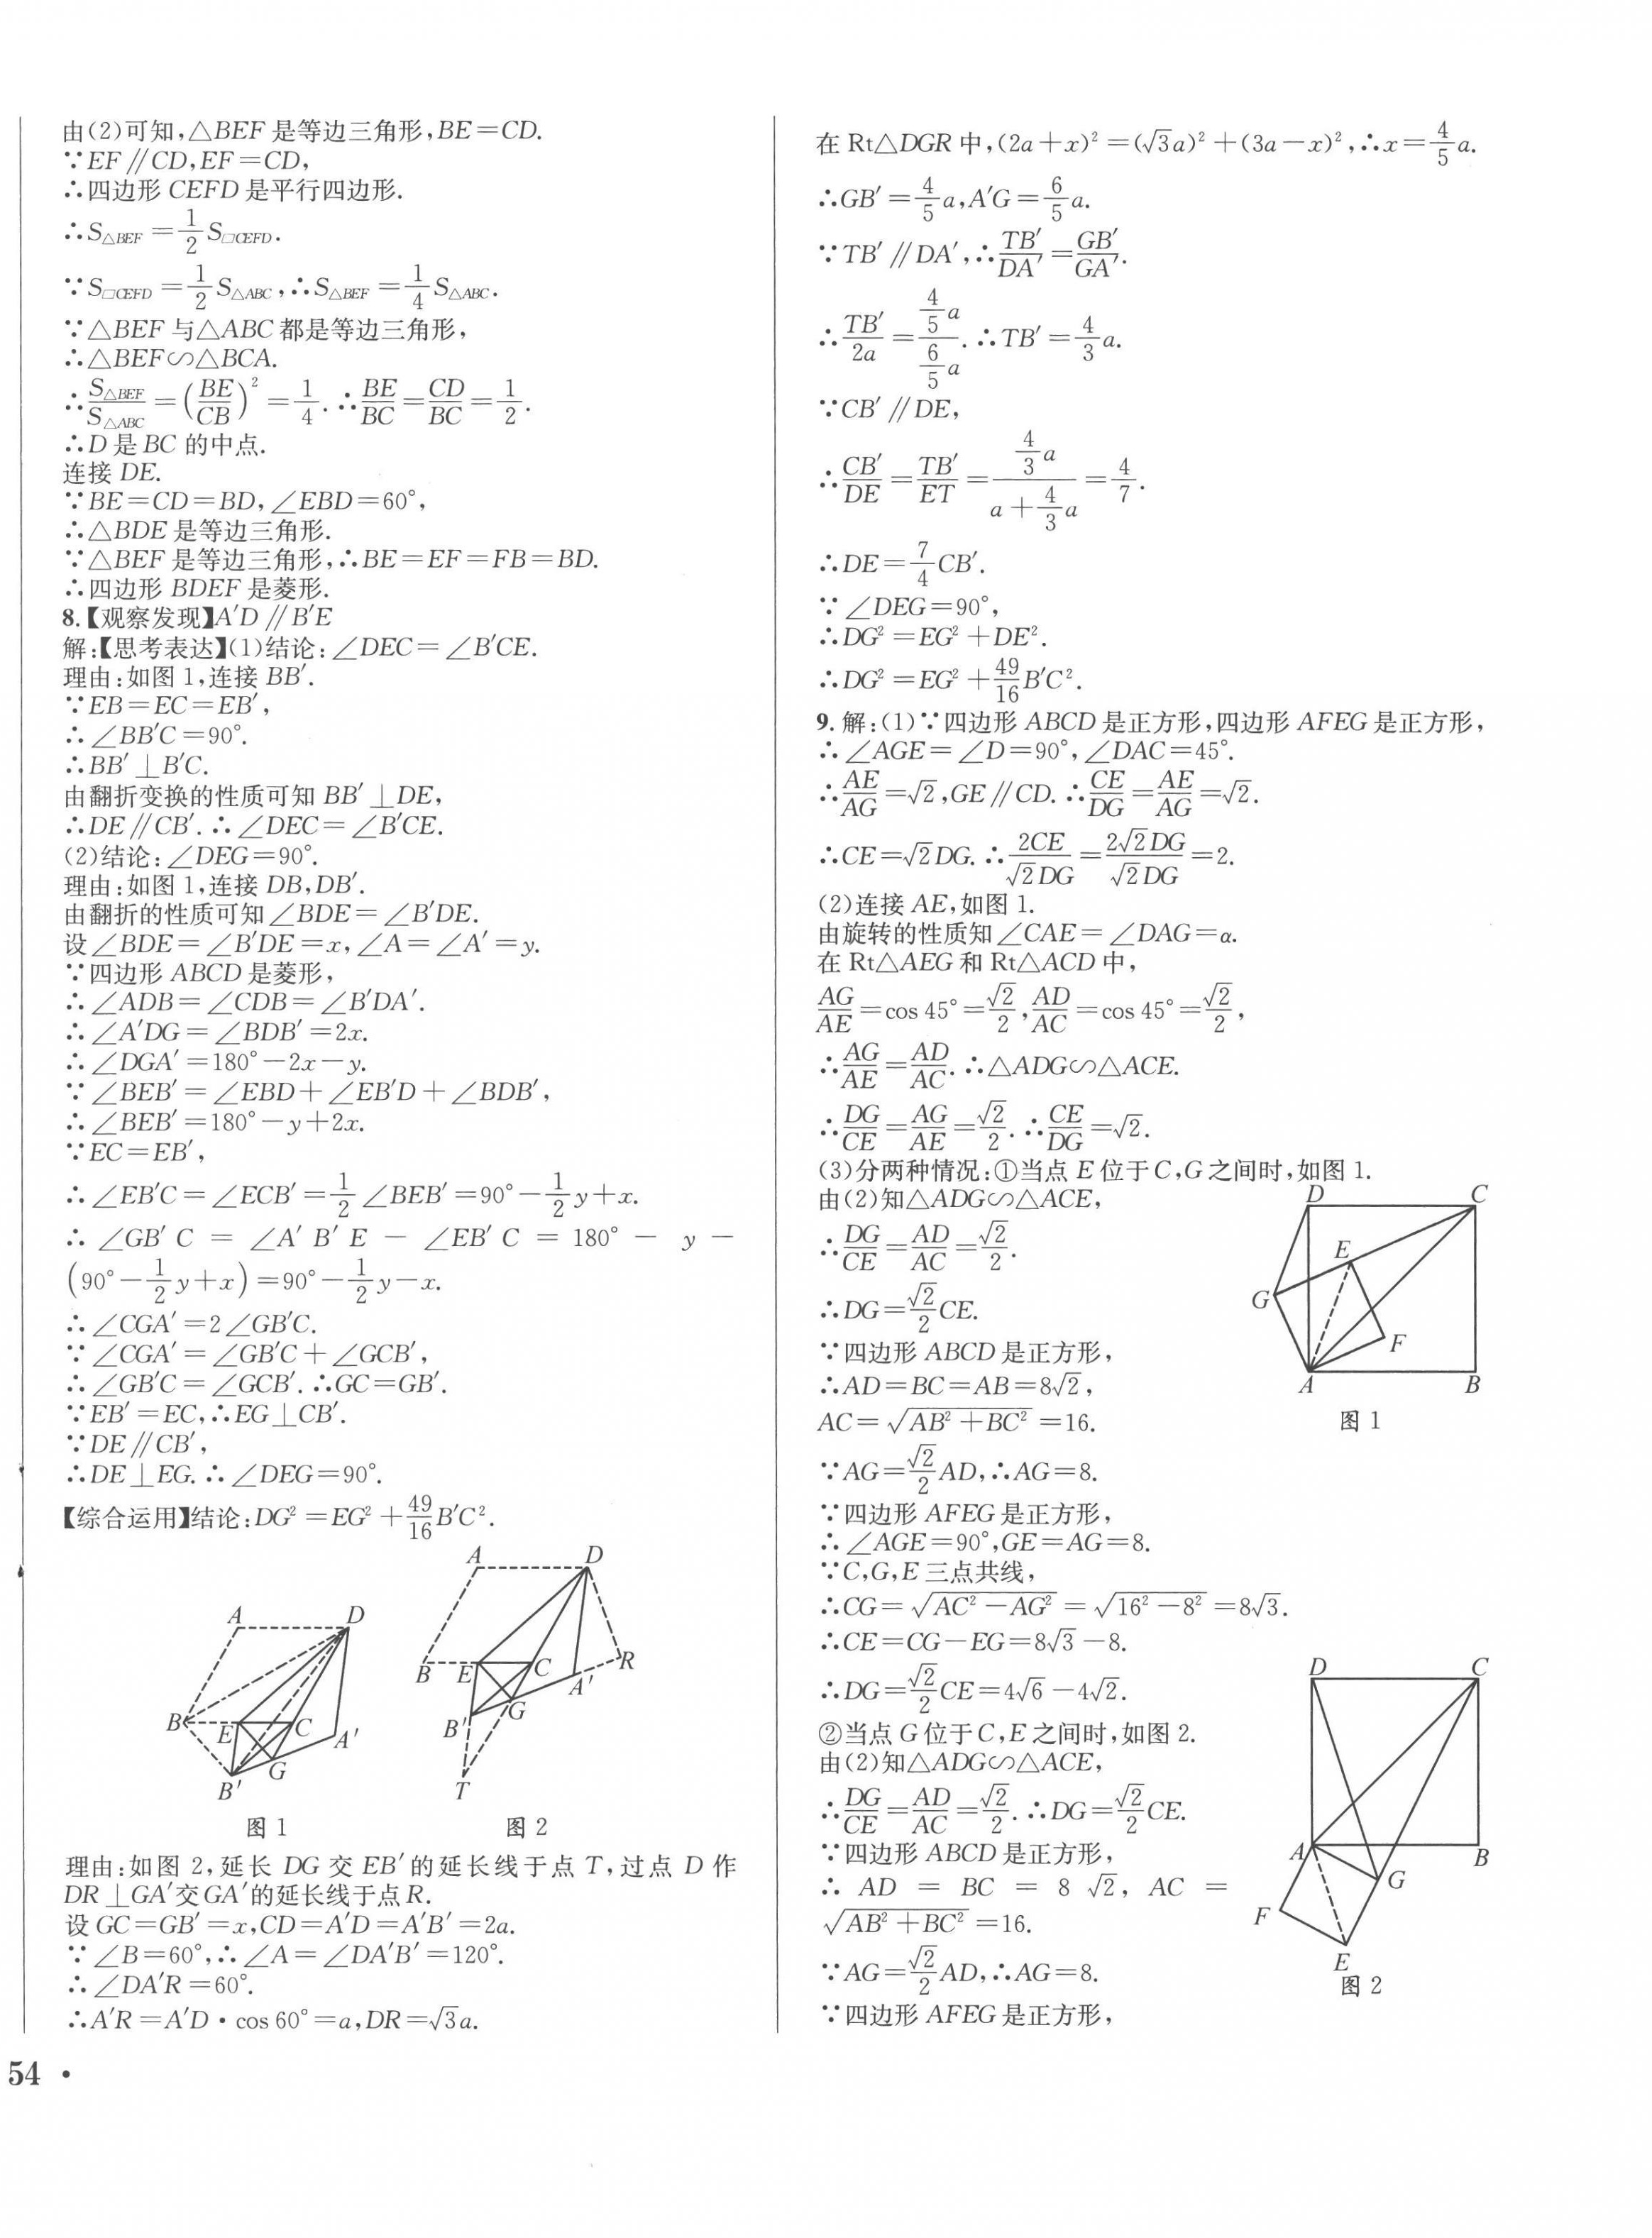 由(2)可知,△BEF是等边三角形,BE=CD.
∵EF∥CD,EF=CD,
∴四边形CEFD是平行四边形.
∴S△BEF=1/2 S□CEFD.
∵S□CEFD=1/2 S△ABC,∴S△BEF=1/4 S△ABC.
∵△BEF与△ABC都是等边三角形,
∴△BEF∽△BCA.
∴S△BEF/S△ABC=(BE/CB)²=1/4.∴BE/BC=CD/BC=1/2.
∴D是BC的中点.
连接DE.
∵BE=CD=BD,∠EBD=60°,
∴△BDE是等边三角形.
∵△BEF是等边三角形,∴BE=EF=FB=BD.
∴四边形BDEF是菱形.
8.【观察发现】A′D∥B′E
解:【思考表达】(1)结论:∠DEC=∠B′CE.
理由:如图1,连接BB′.
∵EB=EC=EB′,
∴∠BB′C=90°.
∴BB′⊥B′C.
由翻折变换的性质可知BB′⊥DE,
∴DE∥CB′.∴∠DEC=∠B′CE.
(2)结论:∠DEG=90°.
理由:如图1,连接DB,DB′.
由翻折的性质可知∠BDE=∠B′DE.
设∠BDE=∠B′DE=x,∠A=∠A′=y.
∵四边形ABCD是菱形,
∴∠ADB=∠CDB=∠B′DA′.
∴∠A′DG=∠BDB′=2x.
∴∠DGA′=180°-2x-y.
∵∠BEB′=∠EBD+∠EB′D+∠BDB′,
∴∠BEB′=180°-y+2x.
∵EC=EB′,
∴∠EB′C=∠ECB′=1/2∠BEB′=90°-1/2 y+x.
∴ ∠GB′C = ∠A′B′E - ∠EB′C = 180° - y -
(90°-1/2 y+x)=90°-1/2 y-x.
∴∠CGA′=2∠GB′C.
∵∠CGA′=∠GB′C+∠GCB′,
∴∠GB′C=∠GCB′.∴GC=GB′.
∵EB′=EC,∴EG⊥CB′.
∵DE∥CB′,
∴DE⊥EG.∴∠DEG=90°.
【综合运用】结论:DG²=EG²+49/16 B′C².
A D B E C G A′ B′
图1
A D B E C R A′ G B′ T
图2
理由:如图2,延长DG交EB′的延长线于点T,过点D作
DR⊥GA′交GA′的延长线于点R.
设GC=GB′=x,CD=A′D=A′B′=2a.
∵∠B=60°,∴∠A=∠DA′B′=120°.
∴∠DA′R=60°.
∴A′R=A′D·cos 60°=a,DR=√3a.
54 ·
在Rt△DGR中,(2a+x)²=(√3a)²+(3a-x)²,∴x=4/5 a.
∴GB′=4/5 a,A′G=6/5 a.
∵TB′∥DA′,∴TB′/DA′=GB′/GA′.
∴TB′/2a=(4/5 a)/(6/5 a).∴TB′=4/3 a.
∵CB′∥DE,
∴CB′/DE=TB′/ET=(4/3 a)/(a+4/3 a)=4/7.
∴DE=7/4 CB′.
∵∠DEG=90°,
∴DG²=EG²+DE².
∴DG²=EG²+49/16 B′C².
9.解:(1)∵四边形ABCD是正方形,四边形AFEG是正方形,
∴∠AGE=∠D=90°,∠DAC=45°.
∴AE/AG=√2,GE∥CD.∴CE/DG=AE/AG=√2.
∴CE=√2DG.∴2CE/√2DG=2√2DG/√2DG=2.
(2)连接AE,如图1.
由旋转的性质知∠CAE=∠DAG=α.
在Rt△AEG和Rt△ACD中,
AG/AE=cos 45°=√2/2,AD/AC=cos 45°=√2/2,
∴AG/AE=AD/AC.∴△ADG∽△ACE.
∴DG/CE=AG/AE=√2/2.∴CE/DG=√2.
(3)分两种情况:①当点E位于C,G之间时,如图1.
由(2)知△ADG∽△ACE,
∴DG/CE=AD/AC=√2/2.
∴DG=√2/2 CE.
∵四边形ABCD是正方形,
∴AD=BC=AB=8√2,
AC=√(AB²+BC²)=16.
∵AG=√2/2 AD,∴AG=8.
∵四边形AFEG是正方形,
∴∠AGE=90°,GE=AG=8.
∵C,G,E三点共线,
∴CG=√(AC²-AG²)=√(16²-8²)=8√3.
∴CE=CG-EG=8√3-8.
∴DG=√2/2 CE=4√6-4√2.
D C E G F A B
图1
②当点G位于C,E之间时,如图2.
由(2)知△ADG∽△ACE,
∴DG/CE=AD/AC=√2/2.∴DG=√2/2 CE.
∵四边形ABCD是正方形,
∴ AD = BC = 8√2, AC =
√(AB²+BC²)=16.
∵AG=√2/2 AD,∴AG=8.
∵四边形AFEG是正方形,
D C A B G F E
图2